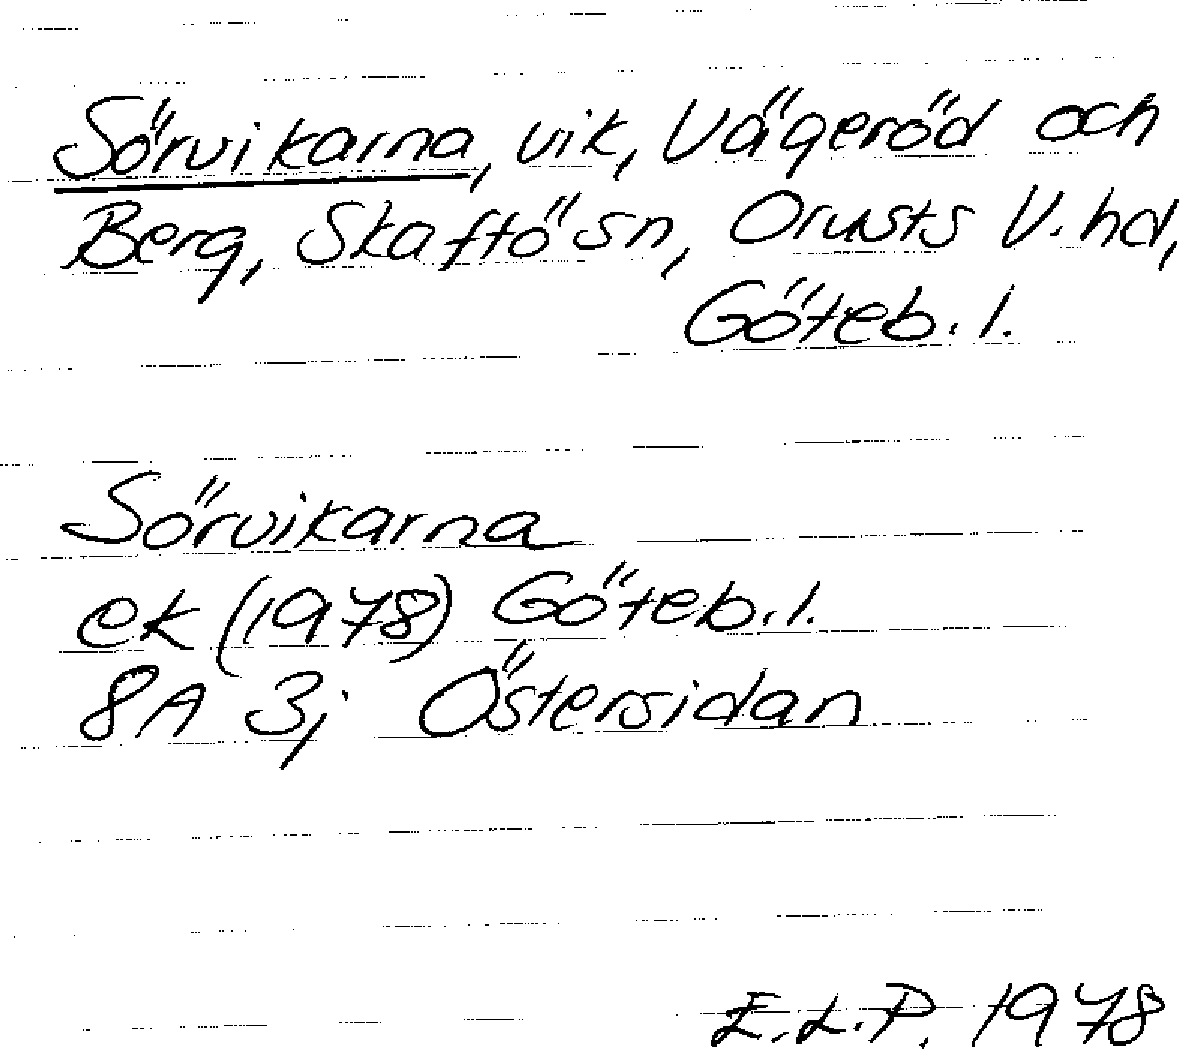 Sörvikarna, vik, Vägeröd och
Berg, Skaftö sn, Orusts V. hd,
Göteb. l.
Sörvikarna
ek (1978) Göteb. l.
8A 3j Östersidan
E.L.P. 1978